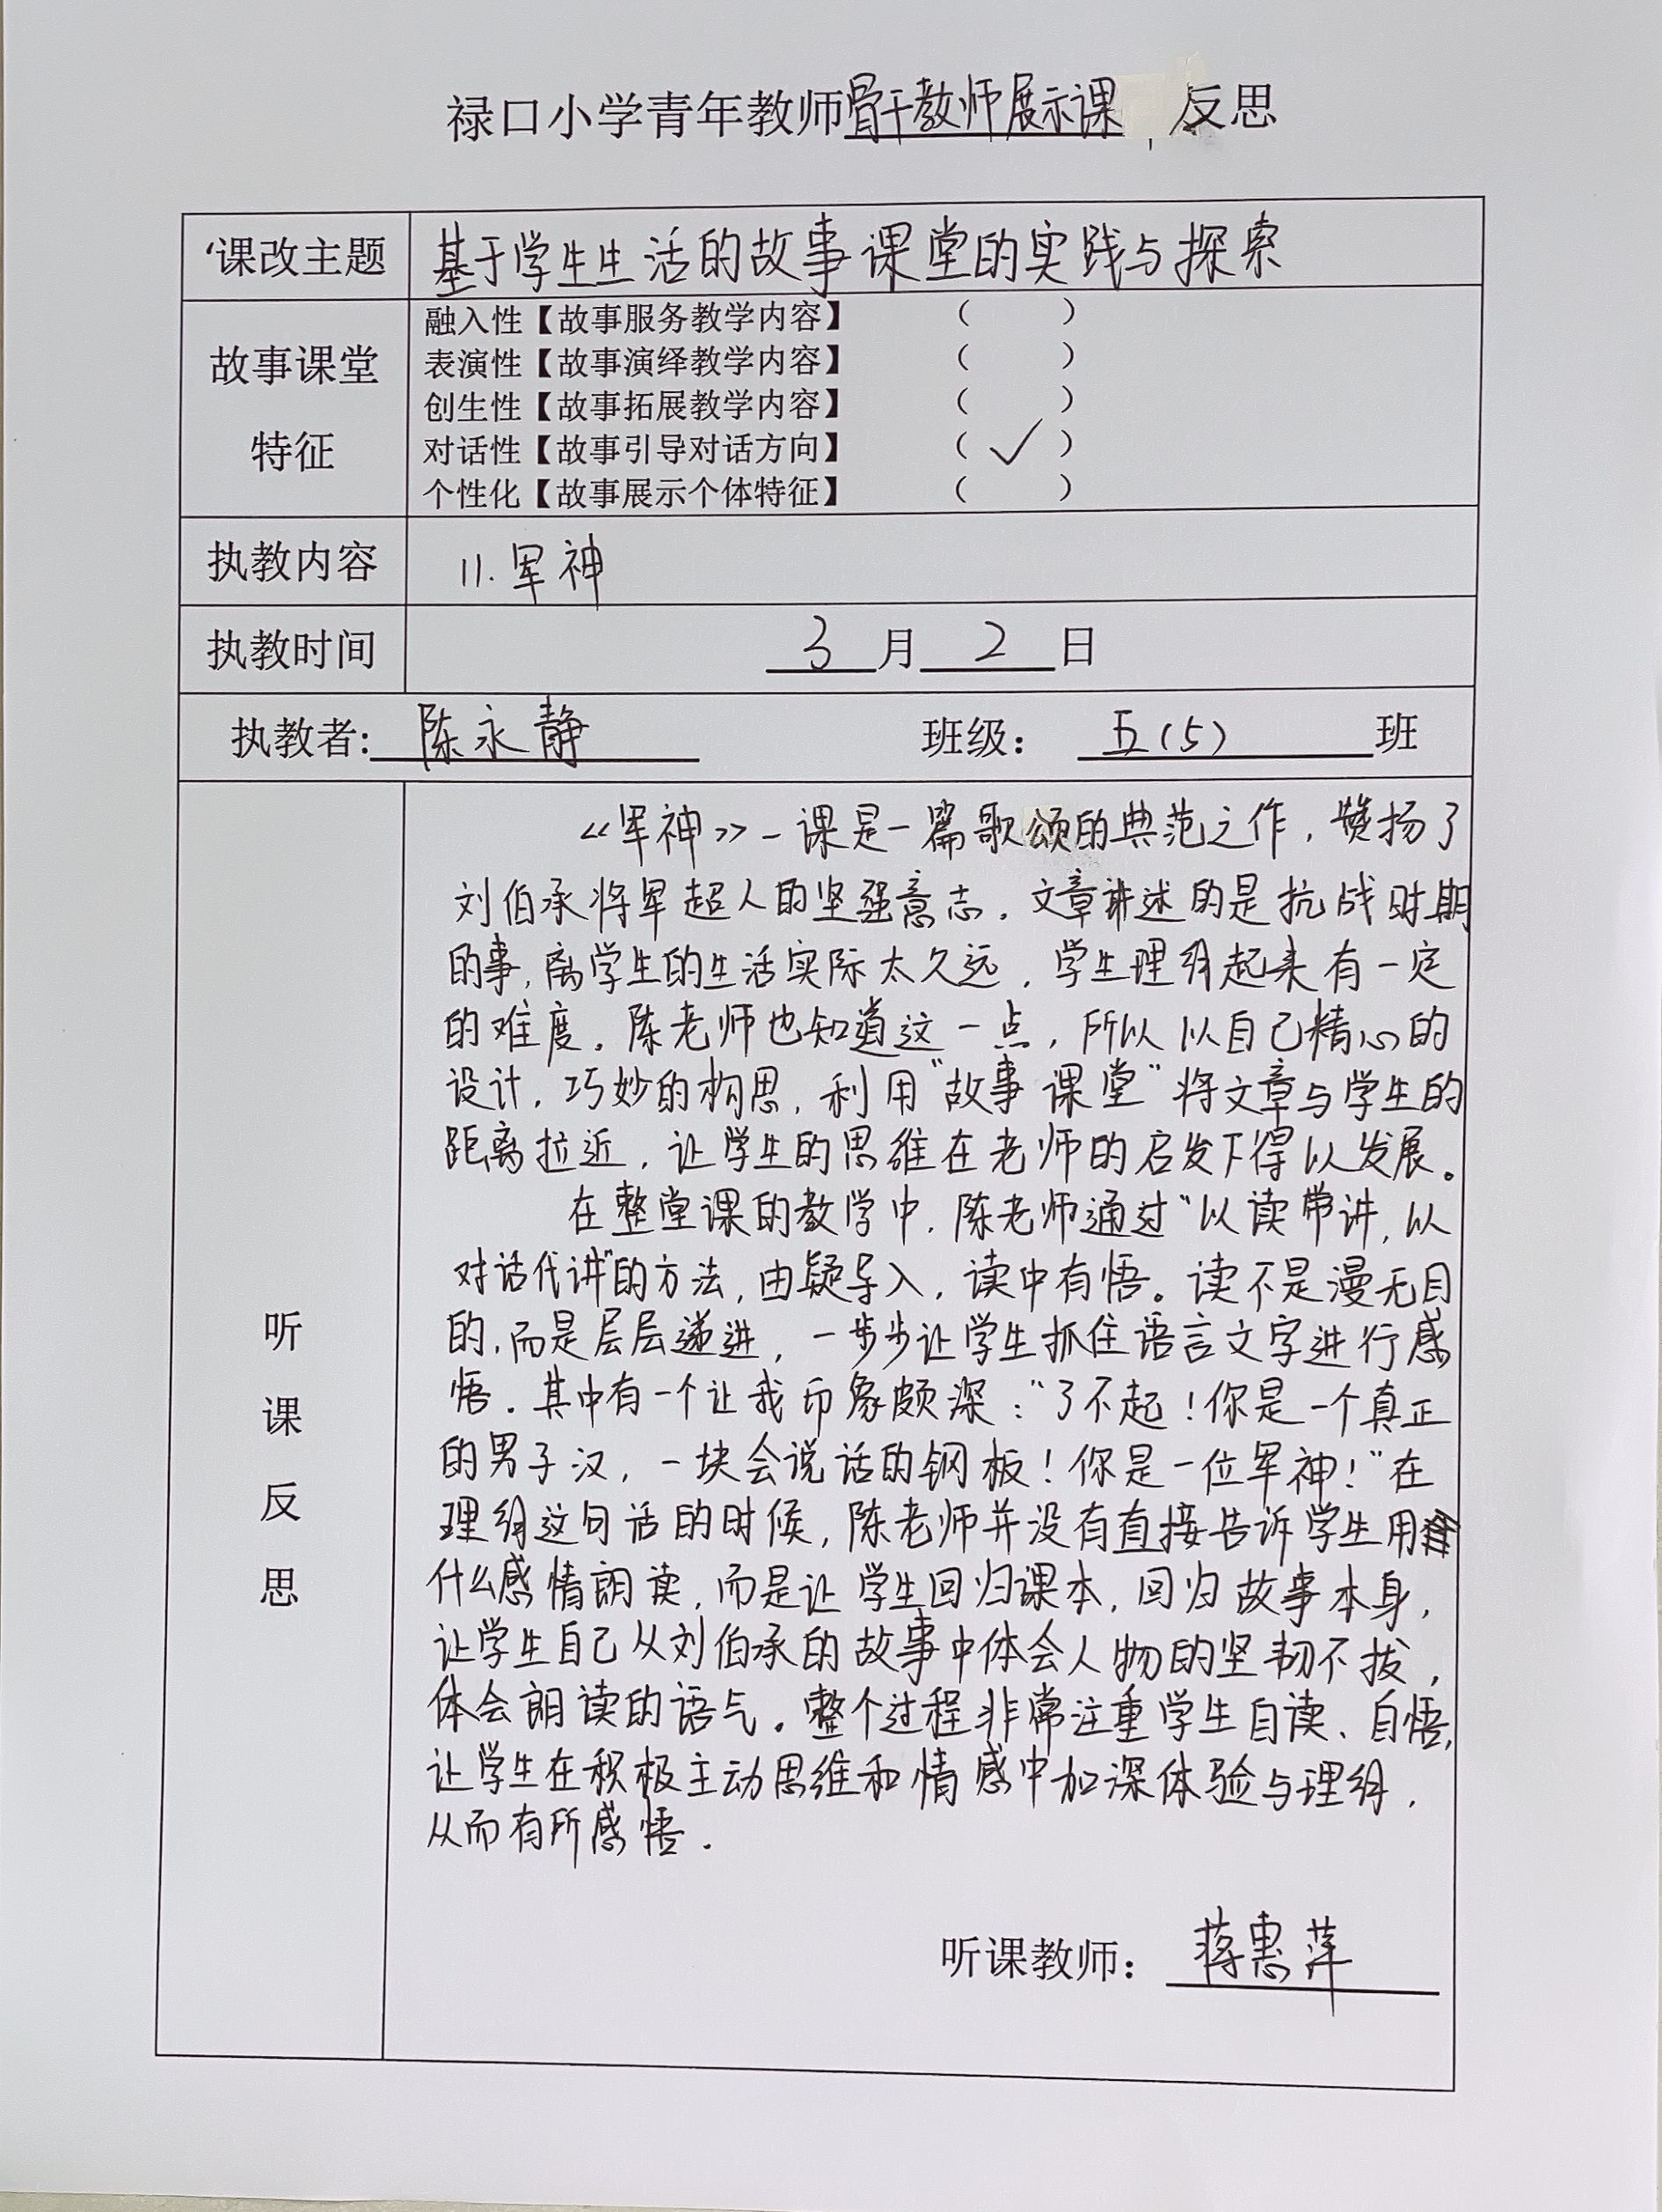 禄口小学青年教师骨干教师展示课反思
课改主题 基于学生生活的故事课堂的实践与探索
融入性【故事服务教学内容】 （ ）
故事课堂 表演性【故事演绎教学内容】 （ ）
创生性【故事拓展教学内容】 （ ）
特征 对话性【故事引导对话方向】 （ ✓ ）
个性化【故事展示个体特征】 （ ）
执教内容 11.军神
执教时间 3月2日
执教者：陈永静 班级：五（5）班
听课反思
《军神》一课是一篇歌颂的典范之作，赞扬了
刘伯承将军超人的坚强意志。文章讲述的是抗战时期
的事，离学生的生活实际太久远，学生理解起来有一定
的难度。陈老师也知道这一点，所以以自己精心的
设计，巧妙的构思，利用“故事课堂”将文章与学生的
距离拉近，让学生的思维在老师的启发下得以发展。
在整堂课的教学中，陈老师通过“以读带讲，以
对话代讲”的方法，由疑导入，读中有悟。读不是漫无目
的，而是层层递进，一步步让学生抓住语言文字进行感
悟。其中有一个让我印象颇深：“了不起！你是一个真正
的男子汉，一块会说话的钢板！你是一位军神！”在
理解这句话的时候，陈老师并没有直接告诉学生用
什么感情朗读，而是让学生回归课本，回归故事本身，
让学生自己从刘伯承的故事中体会人物的坚韧不拔，
体会朗读的语气。整个过程非常注重学生自读、自悟，
让学生在积极主动思维和情感中加深体验与理解，
从而有所感悟。
听课教师：蒋惠萍